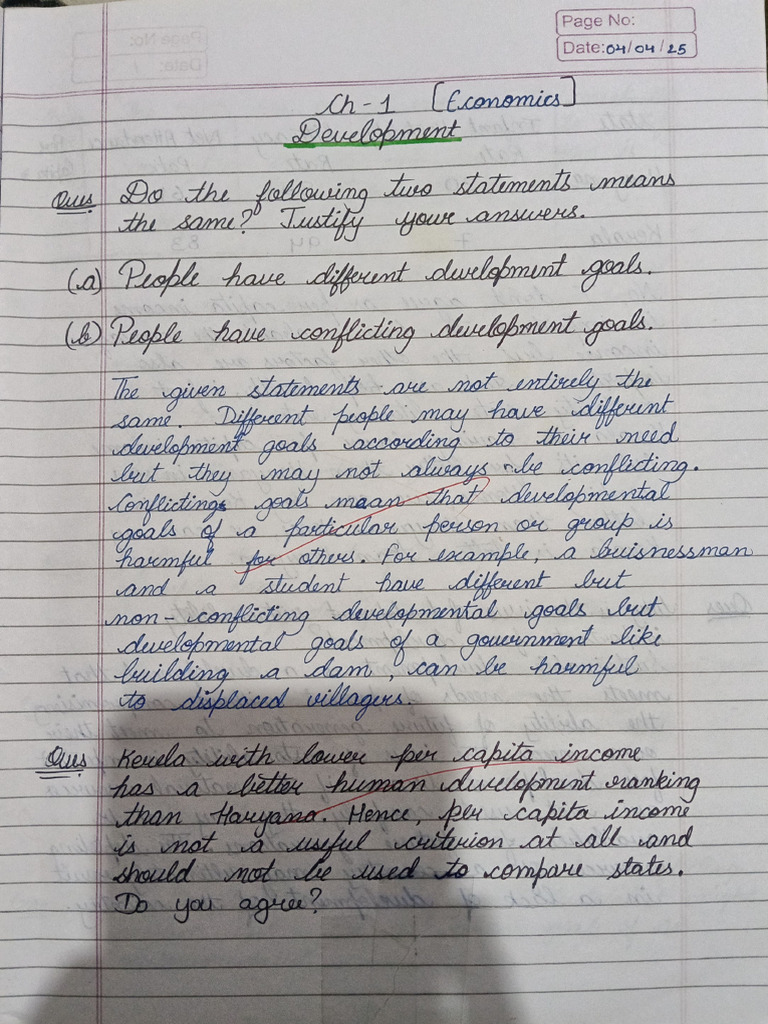 Page No:
Date: 04/04/25
Ch-1 [Economics]
Development
Ques Do the following two statements means
the same? Justify your answers.
(a) People have different development goals.
(b) People have conflicting development goals.
The given statements are not entirely the
same. Different people may have different
development goals according to their need
but they may not always be conflicting.
Conflicting goals mean that developmental
goals of a particular person or group is
harmful for others. For example, a buisnessman
and a student have different but
non-conflicting developmental goals but
developmental goals of a government like
building a dam, can be harmful
to displaced villagers.
Ques Kerela with lower per capita income
has a better human development ranking
than Haryana. Hence, per capita income
is not a useful criterion at all and
should not be used to compare states.
Do you agree?